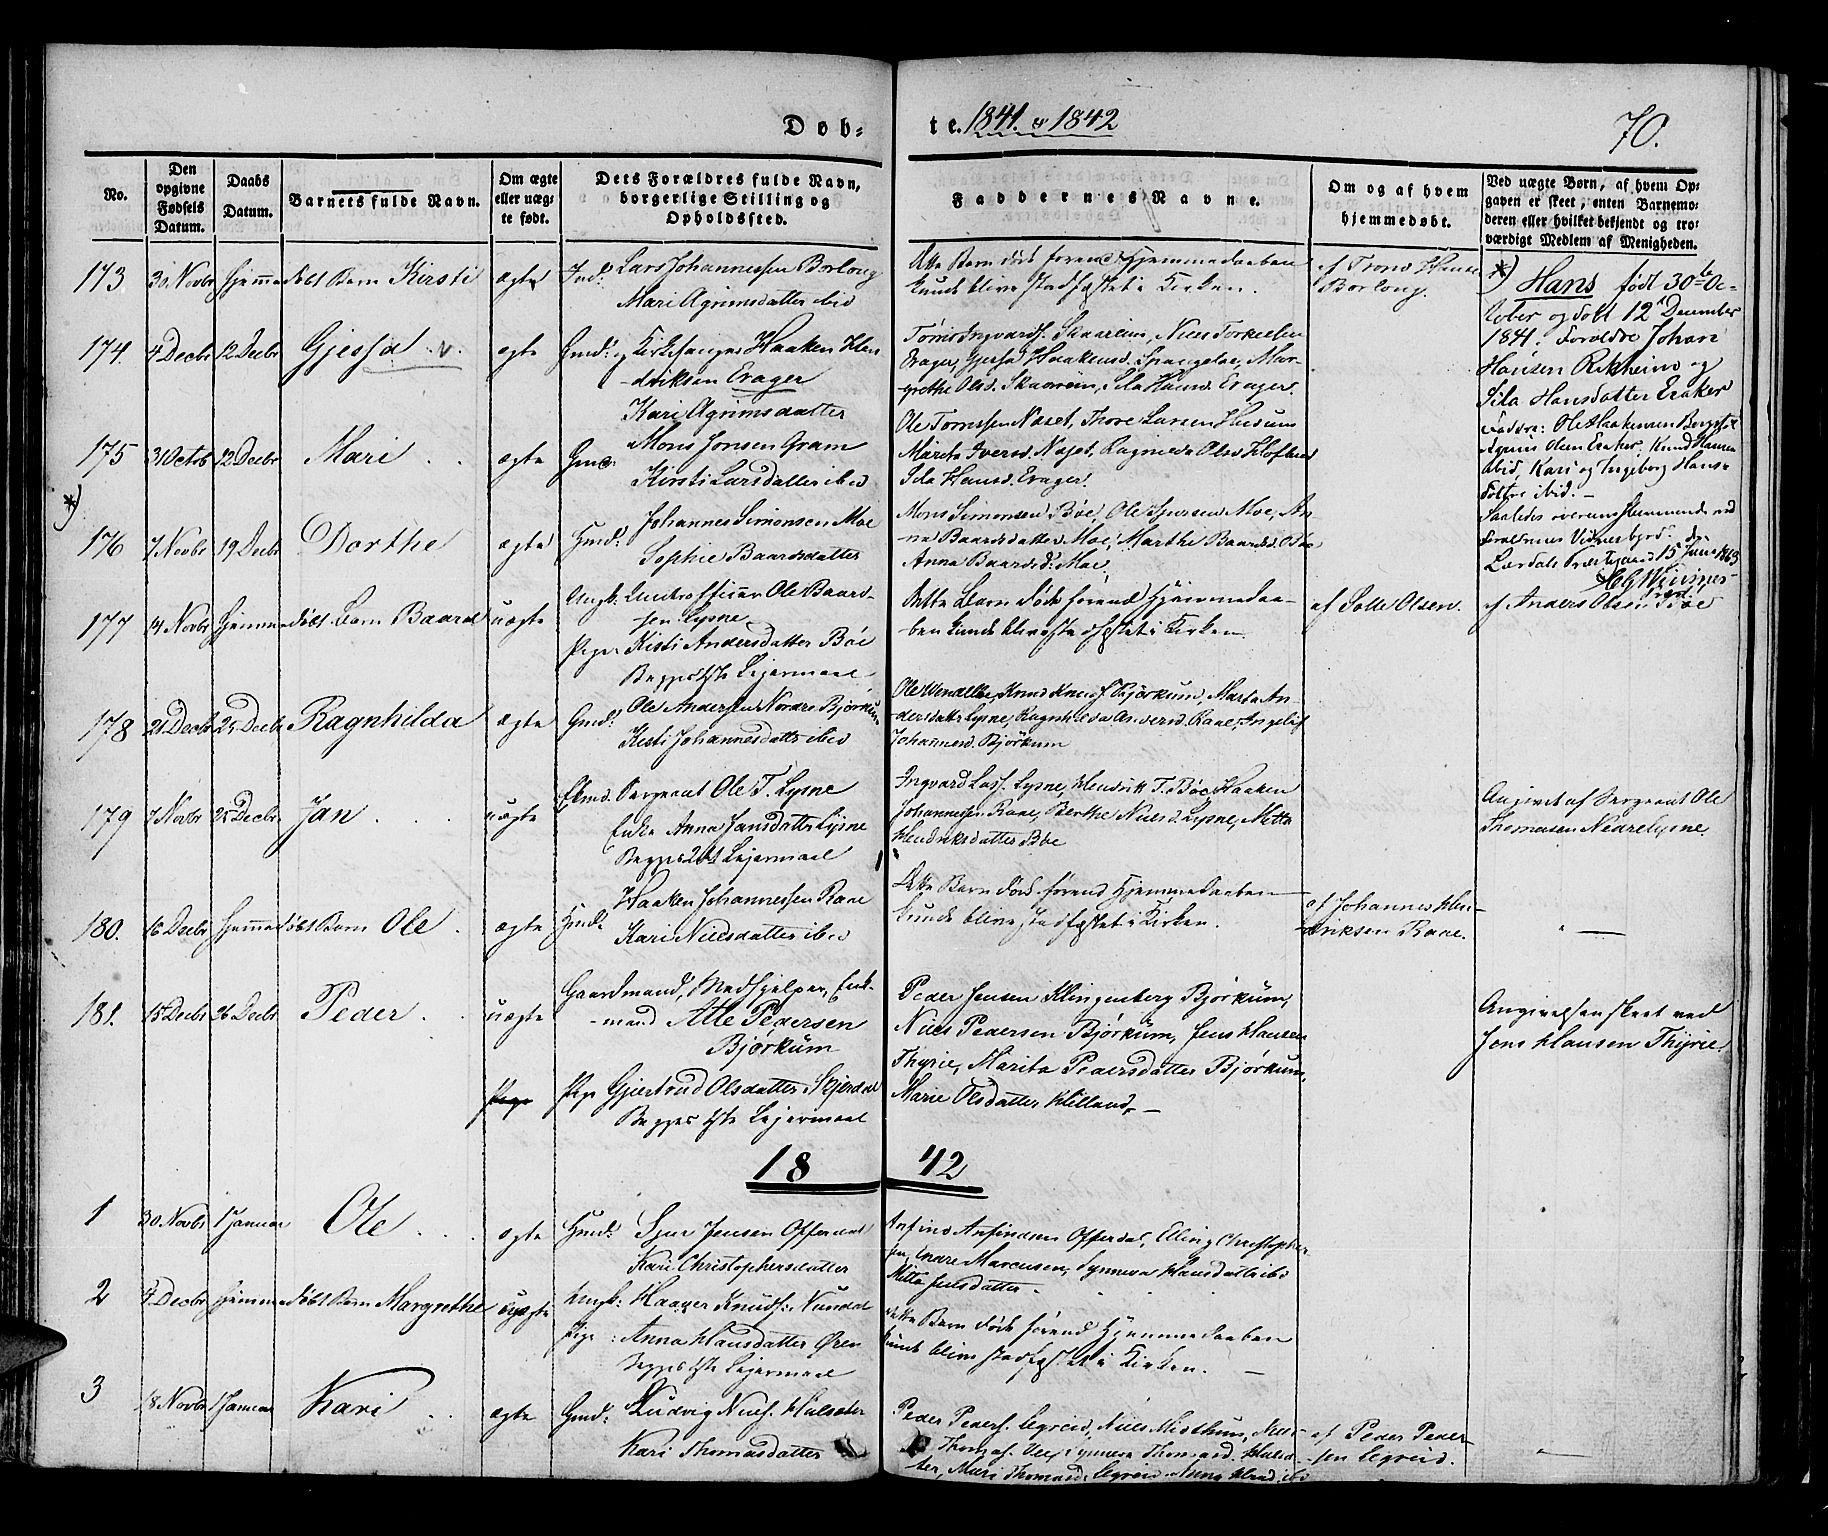 Døb-
te. 1841. & 1842
70.
No.
Den opgivne Fødsels Datum.
Daabs Datum.
Barnets fulde Navn.
Om ægte eller uægte født.
Dets Forældres fulde Navn, borgerlige Stilling og Opholdssted.
Faddernes Navne.
Om og af hvem hjemmedøbt.
Ved uægte Børn, af hvem Opgaven er skeet, enten Barnemoderen eller hvilket bekjendt og troværdigt Medlem af Menigheden.
173 30 Novbr Hjemmedøbt Barn Kirsti ægte Ind: Lars Johannessen Borlong
Mari Agrimsdatter ibid
Dette Barn døde forend Hjemmedaaben
kunde blive stadfæstet i Kirken.
af Trond Hansen
Borlong.
*) Hans født 30te Oc-
tober og døbt 12 December
1841. Forældre Johan
Hansen Rikheim og
Sila Hansdatter Eraker
Faddre: Ole Haakensen Bergstø
Agrim Olsen Eraker, Knud Hansen
ibid, Kari og Ingeborg Hans-
døttre ibid. —
Saaledes overensstemmende med
Forældrenes Vidnesbyrd.
Lærdals Præstegaard 15 Juni 1863
174. 4 Decbr 12 Decbr Gjessa v. ægte Gmd: og Kirkesanger Haaken Hen-
driksen Erager
Kari Agrimsdatter
Tomas Ingvards. Skaareim, Niels Torkelsen
Erager, Gjersa Haakensd. Spangelse, Mar-
grethe Olsd. Skaareim, Sila Hansd. Erager.
175 31 Octob 12 Decbr Mari . . ægte Gmd: Mons Jonsen Gram
Kirsti Larsdatter ibid
Ole Tomessen Naset, Thore Larsen Husum
Marita Iversd. Naset, Ragnild Olsd. Hoflund
Sila Hansd. Erager.
*)
176 7 Novbr 19 Decbr Dorthe ægte Hmd: Johannes Simonsen Moe
Sophie Baardsdatter
Mons Simonsen Bøe, Ole Sjursen Moe, An-
na Baardsdatter Moe, Marthe Baardsd. ibid
Anna Baardsd: Moe.
177 14 Novbr Hjemmedøbt Barn Baard uægte Ungk. Underofficer Ole Baard-
sen Lysne
Pige: Kisti Andersdatter Bøe
Begges 1ste Leiermaal
Dette Barn døde forend Hjemmedaa-
ben kunde blive stadfæstet i Kirken.
af Salle Olsen.
af Anders Olsen Bøe
178 21 Decbr 25 Decbr Ragnhilda ægte Gmd: Ole Andersen Nordre Bjørkum
Kisti Johannesdatter ibid
Knud Knuds. Bjørkum, Marta An-
dersdatter Lysne, Ragnhilda Andersd. Raae, Angelif
Johannesd. Bjørkum
179 7 Novbr 25 Decbr Jan . . . uægte Ekmd. Sergeant Ole T. Lysne
Enke Anna Jansdatter Lysne
Begges 2det Leiermaal
Ingvard Lass. Lysne, Hendrik T. Bøe, Haaken
Johannessen Raae, Berthe Nielsd. Lysne, Mette
Hendriksdatter Bøe
Angivet af Sergeant Ole
Thomasen Nedrelysne
180. 16 Decbr Hjemmedøbt Barn Ole . ægte Hmd: Haaken Johannessen Raae
Kari Nielsdatter ibid
Dette Barn døde forend Hjemmedaaben
kunde blive stadfæstet i Kirken.
af Johannes Hen-
driksen Raae.
181. 15 Decbr 26 Decbr Peder . . uægte Gaardmand, Medhjelper, Enk-
mand Atle Pedersen
Bjørkum
Pige Gjertrud Olsdatter Skjerdal
Begges 1ste Leiermaal
Peder Jensen Klingenberg Bjørkum,
Niels Pedersen Bjørkum, Jens Hansen
Thyrie, Marita Pedersdatter Bjørkum,
Marie Olsdatter Hilland, —
Angivelsen skeet ved
Jens Hansen Thyrie.
18 42
1 30 Novbr 1 Januar Ole . . . ægte Hmd: Sjur Jensen Offerdal
Kari Christophersdatter
Anfind Anfindsen Offerdal, Elling Christopher-
sen, Marcusen, Synneva Hansdatter ibid
Mitte Jensdatter .
2 Decbr Hjemmedøbt Barn Margrethe uægte Ungk: Haager Knuds: Nundal
Pige: Anna Hansdatter Øren
Begges 1ste Leiermaal
Dette Barn døde førend Hjemmedaaben
kunde blive stadfæstet i Kirken. —
3 18 Novbr 1 Januar Kari . . ægte Gmd: Ludvig Niels. Hulsater
Kari Thomasdatter
Peder Peders. Segreid, Niels Misthun, Niels
Thomas. Synneva Thomasd. Hulsæ-
ter, Mari Thomasd. Segreid, Anna
af Peder Peder-
sen Segreid.